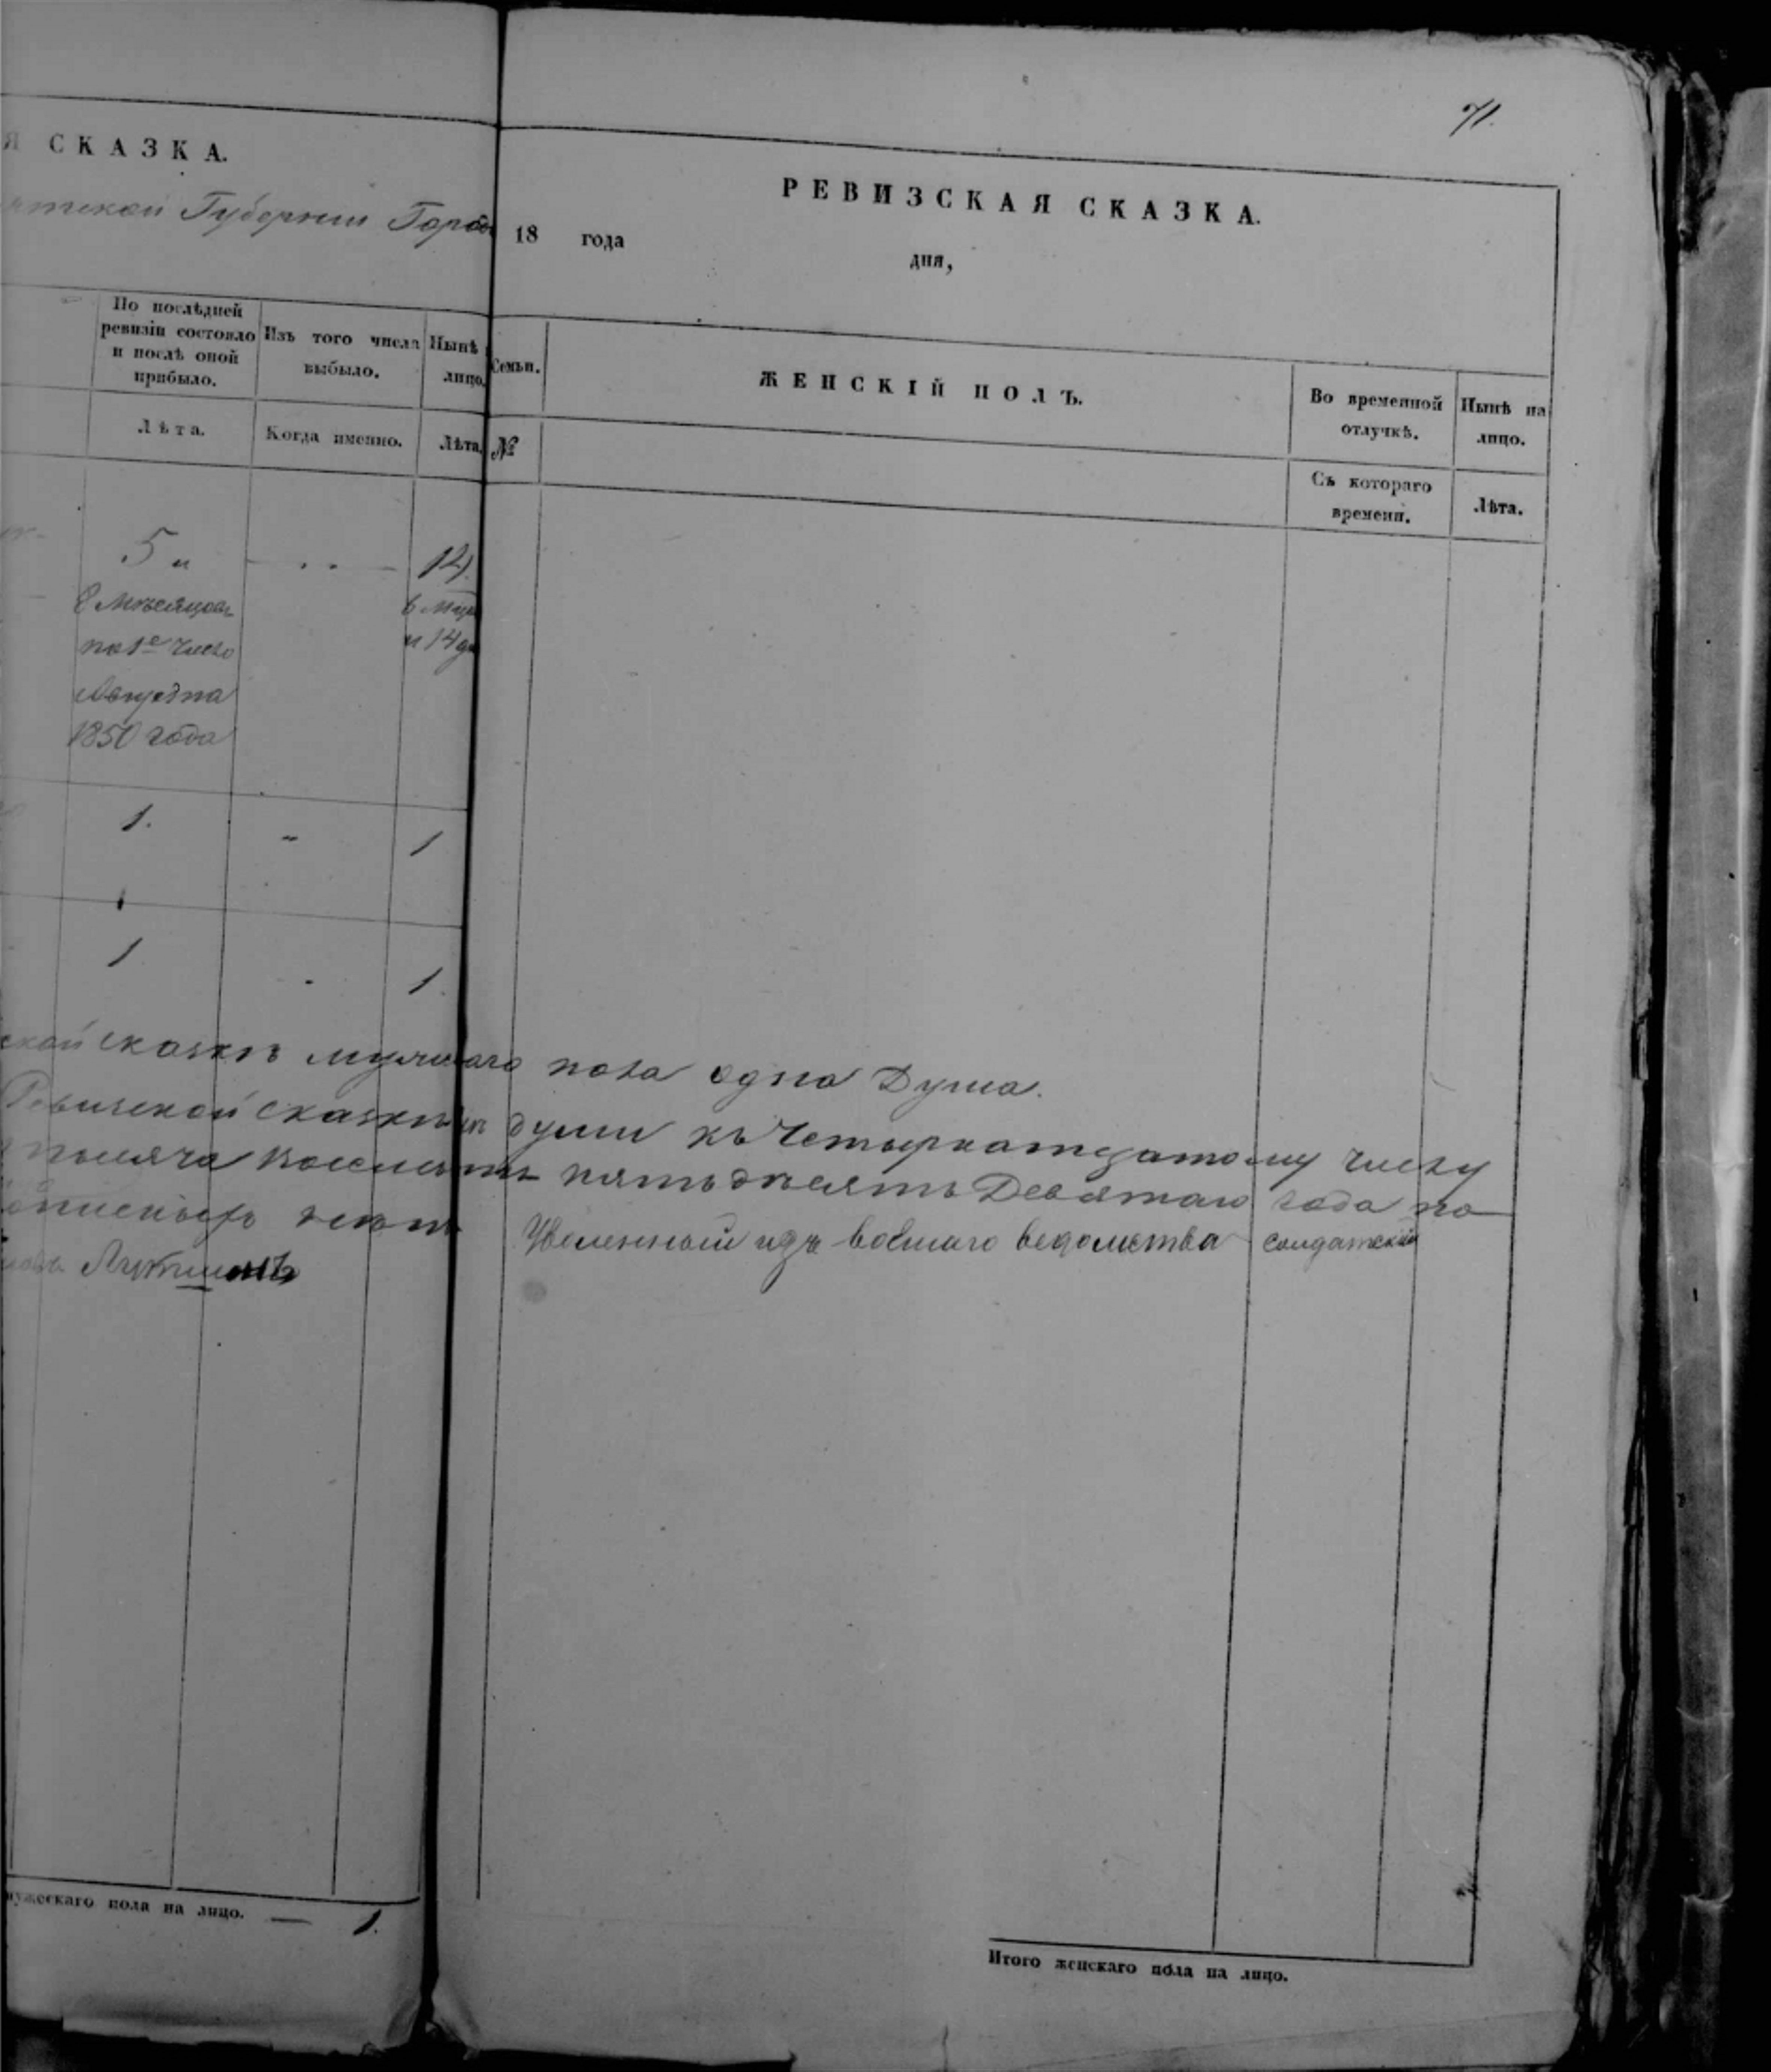 71.
Я СКАЗКА.
Губернии Горо
По послѣдней ревизіи состояло и послѣ оной прибыло.
Изъ того числа выбыло.
Нынѣ лицо.
Лѣта.
Когда именно.
Лѣта.
5 и
8 Мѣсяцовъ
по 1е число
Августа
1850 года
14.
6 Мцв
и 14 дн
1.
-
1
1
-
1.
ской сказкѣ мужскаго пола одна Душа.
Ревизской сказкѣ души къ Четырнатцатому числу
тысяча восемьсотъ пятьдесятъ Девятаго года по
Уволенный изъ военнаго ведомства солдатскій
мужескаго пола на лицо. — 1.
РЕВИЗСКАЯ СКАЗКА.
18 года
дня,
Семьи.
ЖЕНСКІЙ ПОЛЪ.
Во временной отлучкѣ.
Нынѣ на лицо.
№
Съ котораго времени.
Лѣта.
Итого женскаго пола на лицо.